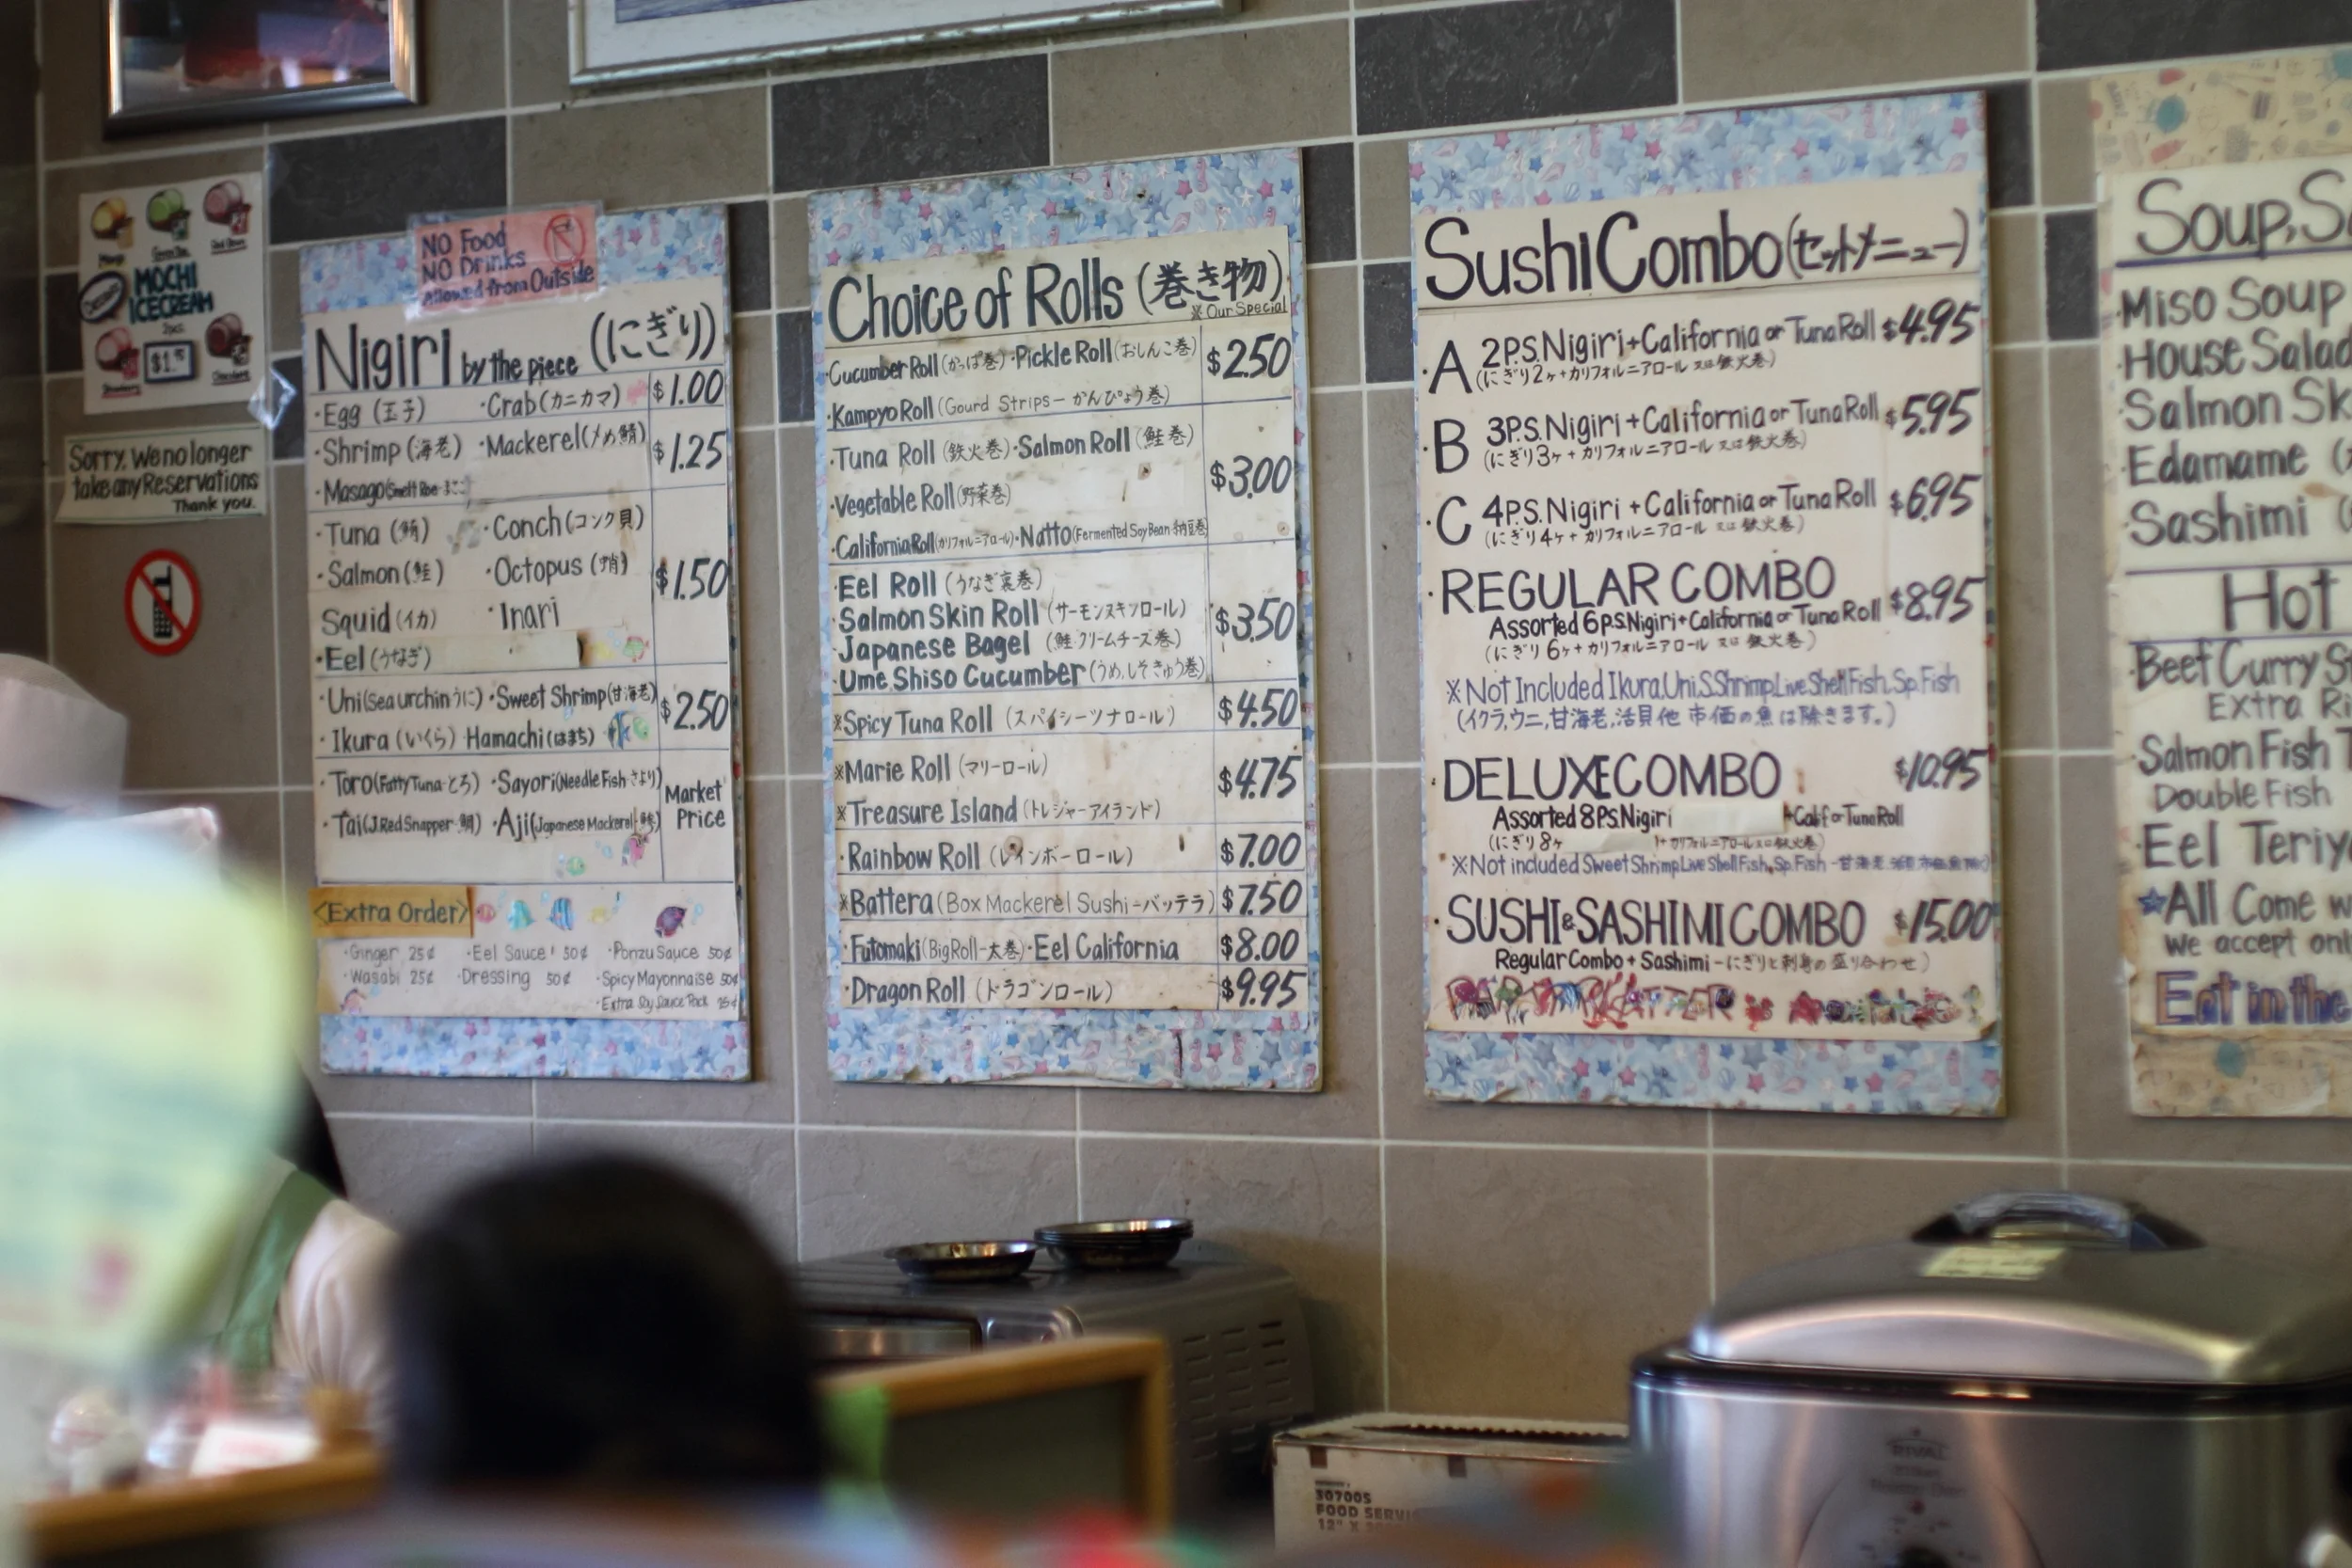 MOCHI
ICECREAM
2pcs.
Sorry, We no longer
take any Reservations
Thank you.
NO Food
NO Drinks
allowed from Outside
Nigiri by the piece (にぎり)
・Egg (玉子) ・Crab (カニカマ) $1.00
・Shrimp (海老) ・Mackerel (〆め鯖) $1.25
・Masago (Smelt Roe
・Tuna (鮪) ・Conch (コンク貝)
・Salmon (鮭) ・Octopus (蛸) $1.50
Squid (イカ) ・Inari
・Eel (うなぎ)
・Uni (Sea urchin うに) ・Sweet Shrimp (甘海老) $2.50
・Ikura (いくら) ・Hamachi (はまち)
・Toro (Fatty Tuna-とろ) ・Sayori (Needle Fish-さより) Market Price
・Tai (J.Red Snapper-鯛) ・Aji (Japanese Mackerel-鯵)
<Extra Order>
・Ginger 25¢ ・Eel Sauce 50¢ ・Ponzu Sauce 50¢
・Wasabi 25¢ ・Dressing 50¢ ・Spicy Mayonnaise 50¢
・Extra Soy Sauce Pack
Choice of Rolls (巻き物)
※Our Special
・Cucumber Roll (かっぱ巻) ・Pickle Roll (おしんこ巻) $2.50
・Kampyo Roll (Gourd Strips-かんぴょう巻)
・Tuna Roll (鉄火巻) ・Salmon Roll (鮭巻)
・Vegetable Roll (野菜巻) $3.00
・California Roll (カリフォルニアロール) ・Natto (Fermented Soy Bean-納豆巻)
・Eel Roll (うなぎ裏巻)
・Salmon Skin Roll (サーモンスキンロール) $3.50
・Japanese Bagel (鮭.クリームチーズ巻)
・Ume Shiso Cucumber (うめ,しそきゅう巻)
※Spicy Tuna Roll (スパイシーツナロール) $4.50
※Marie Roll (マリーロール) $4.75
※Treasure Island (トレジャーアイランド)
・Rainbow Roll (レインボーロール) $7.00
※Battera (Box Mackerel Sushi-バッテラ) $7.50
・Futomaki (Big Roll-太巻) ・Eel California $8.00
・Dragon Roll (ドラゴンロール) $9.95
Sushi Combo (セットメニュー)
・A 2P.S. Nigiri + California or Tuna Roll $4.95
(にぎり2ヶ+カリフォルニアロール 又は 鉄火巻)
・B 3P.S. Nigiri + California or Tuna Roll $5.95
(にぎり3ヶ+カリフォルニアロール 又は 鉄火巻)
・C 4P.S. Nigiri + California or Tuna Roll $6.95
(にぎり4ヶ+カリフォルニアロール 又は 鉄火巻)
・REGULAR COMBO $8.95
Assorted 6P.S. Nigiri + California or Tuna Roll
(にぎり6ヶ+カリフォルニアロール 又は 鉄火巻)
※Not Included Ikura, Uni, S.Shrimp, Live Shell Fish, Sp. Fish
(イクラ,ウニ,甘海老,活貝他 市価の魚は除きます。)
・DELUXE COMBO $10.95
Assorted 8P.S. Nigiri +Calif or Tuna Roll
(にぎり8ヶ +カリフォルニアロール又は鉄火巻)
※Not included Sweet Shrimp, Live Shell Fish, Sp. Fish
・SUSHI & SASHIMI COMBO $15.00
Regular Combo + Sashimi -にぎりと刺身の盛り合わせ)
Soup,
・Miso Soup
・House Salad
・Salmon
・Edamame
・Sashimi
Hot
・Beef Curry
Extra
・Salmon Fish
Double Fish
・Eel
★All Come
We accept
Eat in the
RIVAL
30700S
FOOD
12" X